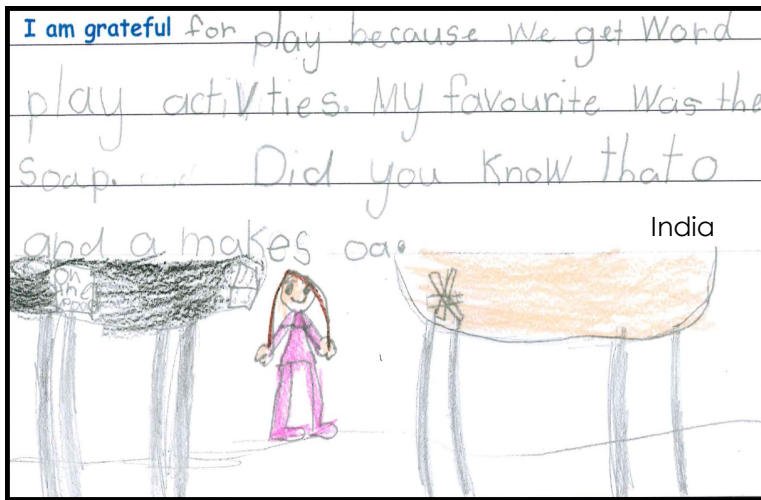 I am grateful for play because we get Word
play activities. My favourite Was the
Soap. Did you know that o
and a makes oa.
India
on
the